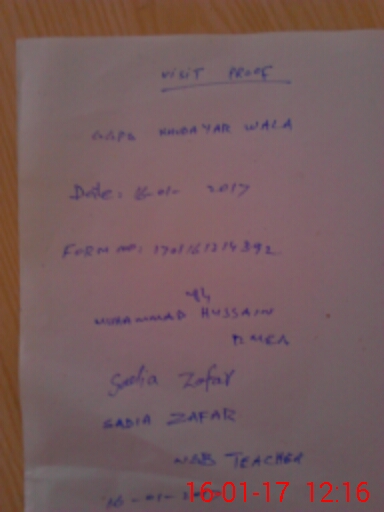 VISIT PROOF
GGPS KHUDAYAR WALA
Date: 16-01- 2017
FORM NO: 
MUHAMMAD HUSSAIN
DMEA
Sadia Zafar
SADIA ZAFAR
TEACHER
16-01-2017
16-01-17 12:16